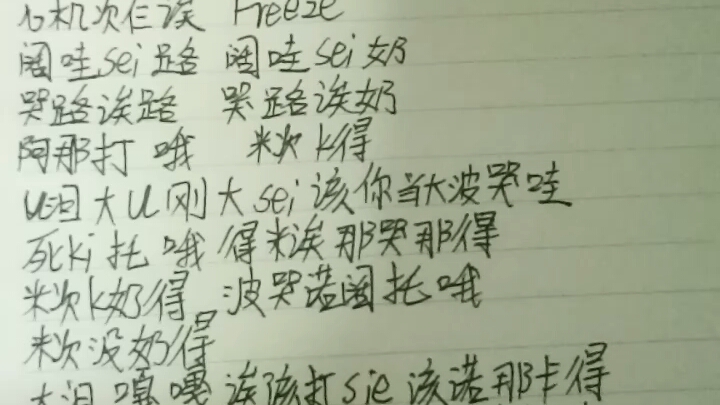 机次仨诶 Freeze
阔哇sei路 阔哇sei奶
哭路诶路 哭路诶奶
阿那打哦 米次k得
U泪大U刚大sei该你当大波哭哇
死ki托哦得米诶那哭那得
米次k奶得 波哭诺阔托哦
米次没奶得
大泪嘎嘎诶孩打sie该诺那卡得